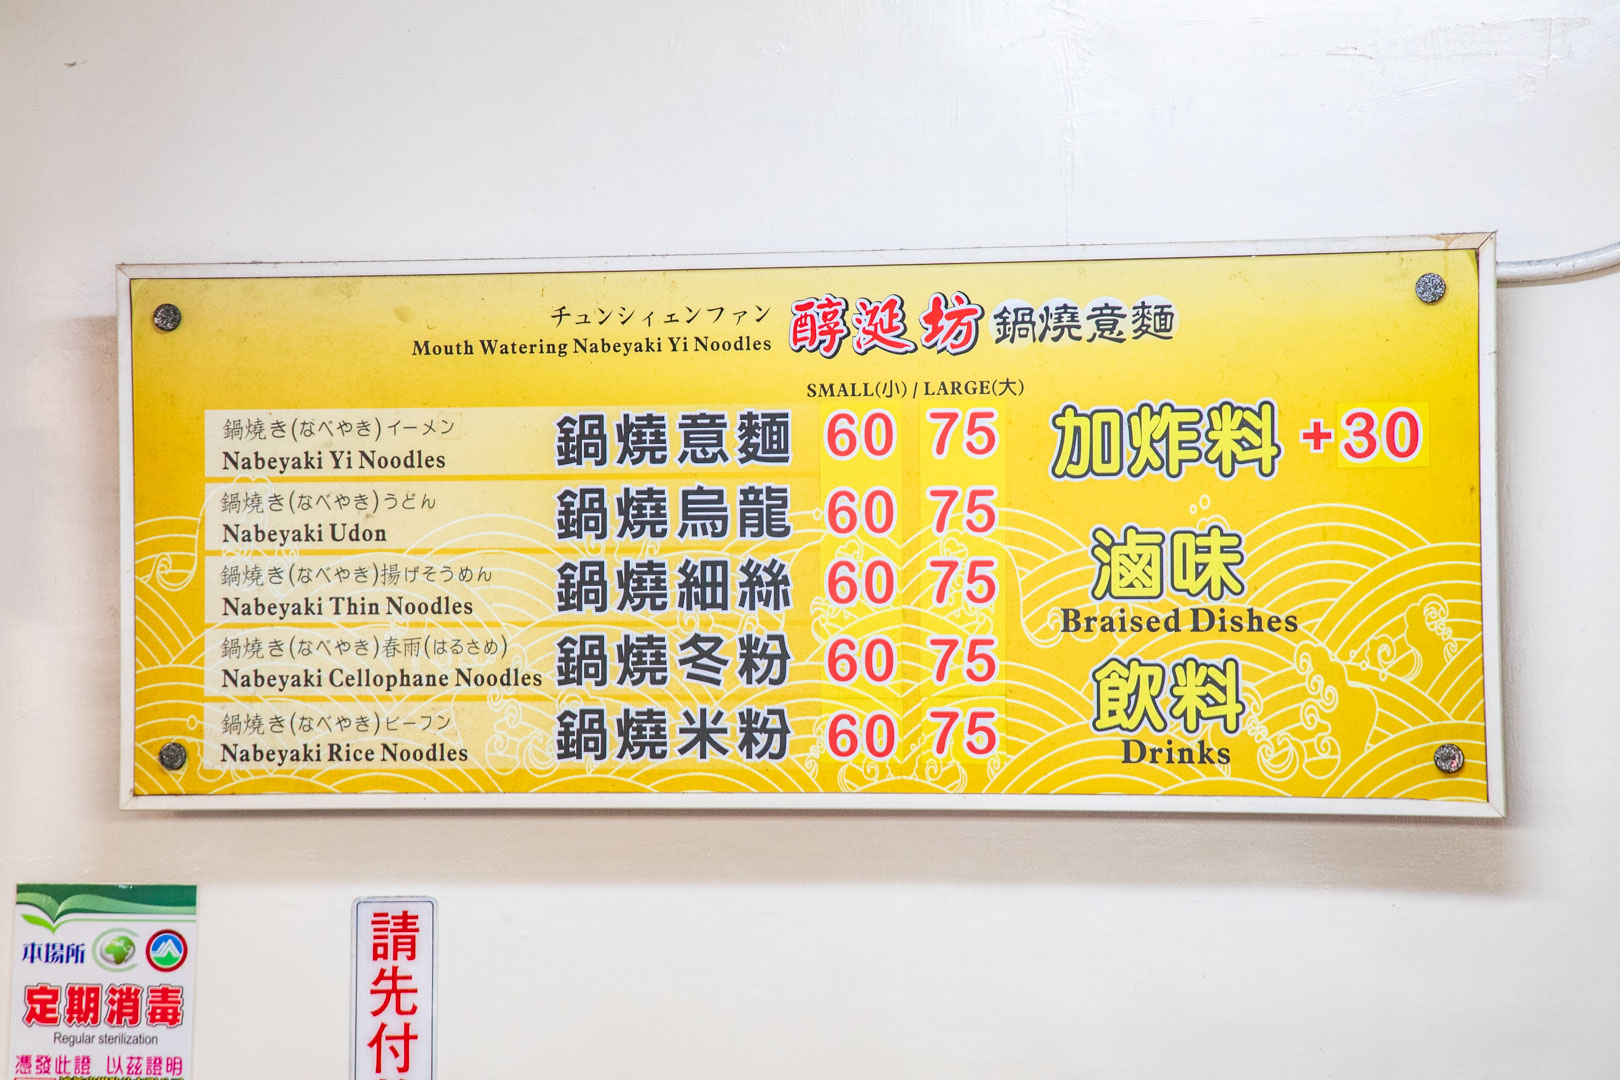 チュンシィェンファン
Mouth Watering Nabeyaki Yi Noodles
醇涎坊 鍋燒意麵
SMALL(小) / LARGE(大)
鍋焼き(なべやき)イーメン
Nabeyaki Yi Noodles
鍋燒意麵 60 75
鍋焼き(なべやき)うどん
Nabeyaki Udon
鍋燒烏龍 60 75
鍋焼き(なべやき)揚げそうめん
Nabeyaki Thin Noodles
鍋燒細絲 60 75
鍋焼き(なべやき)春雨(はるさめ)
Nabeyaki Cellophane Noodles
鍋燒冬粉 60 75
鍋焼き(なべやき)ビーフン
Nabeyaki Rice Noodles
鍋燒米粉 60 75
加炸料 +30
滷味
Braised Dishes
飲料
Drinks
本場所
定期消毒
Regular sterilization
憑發此證 以茲證明
請先付